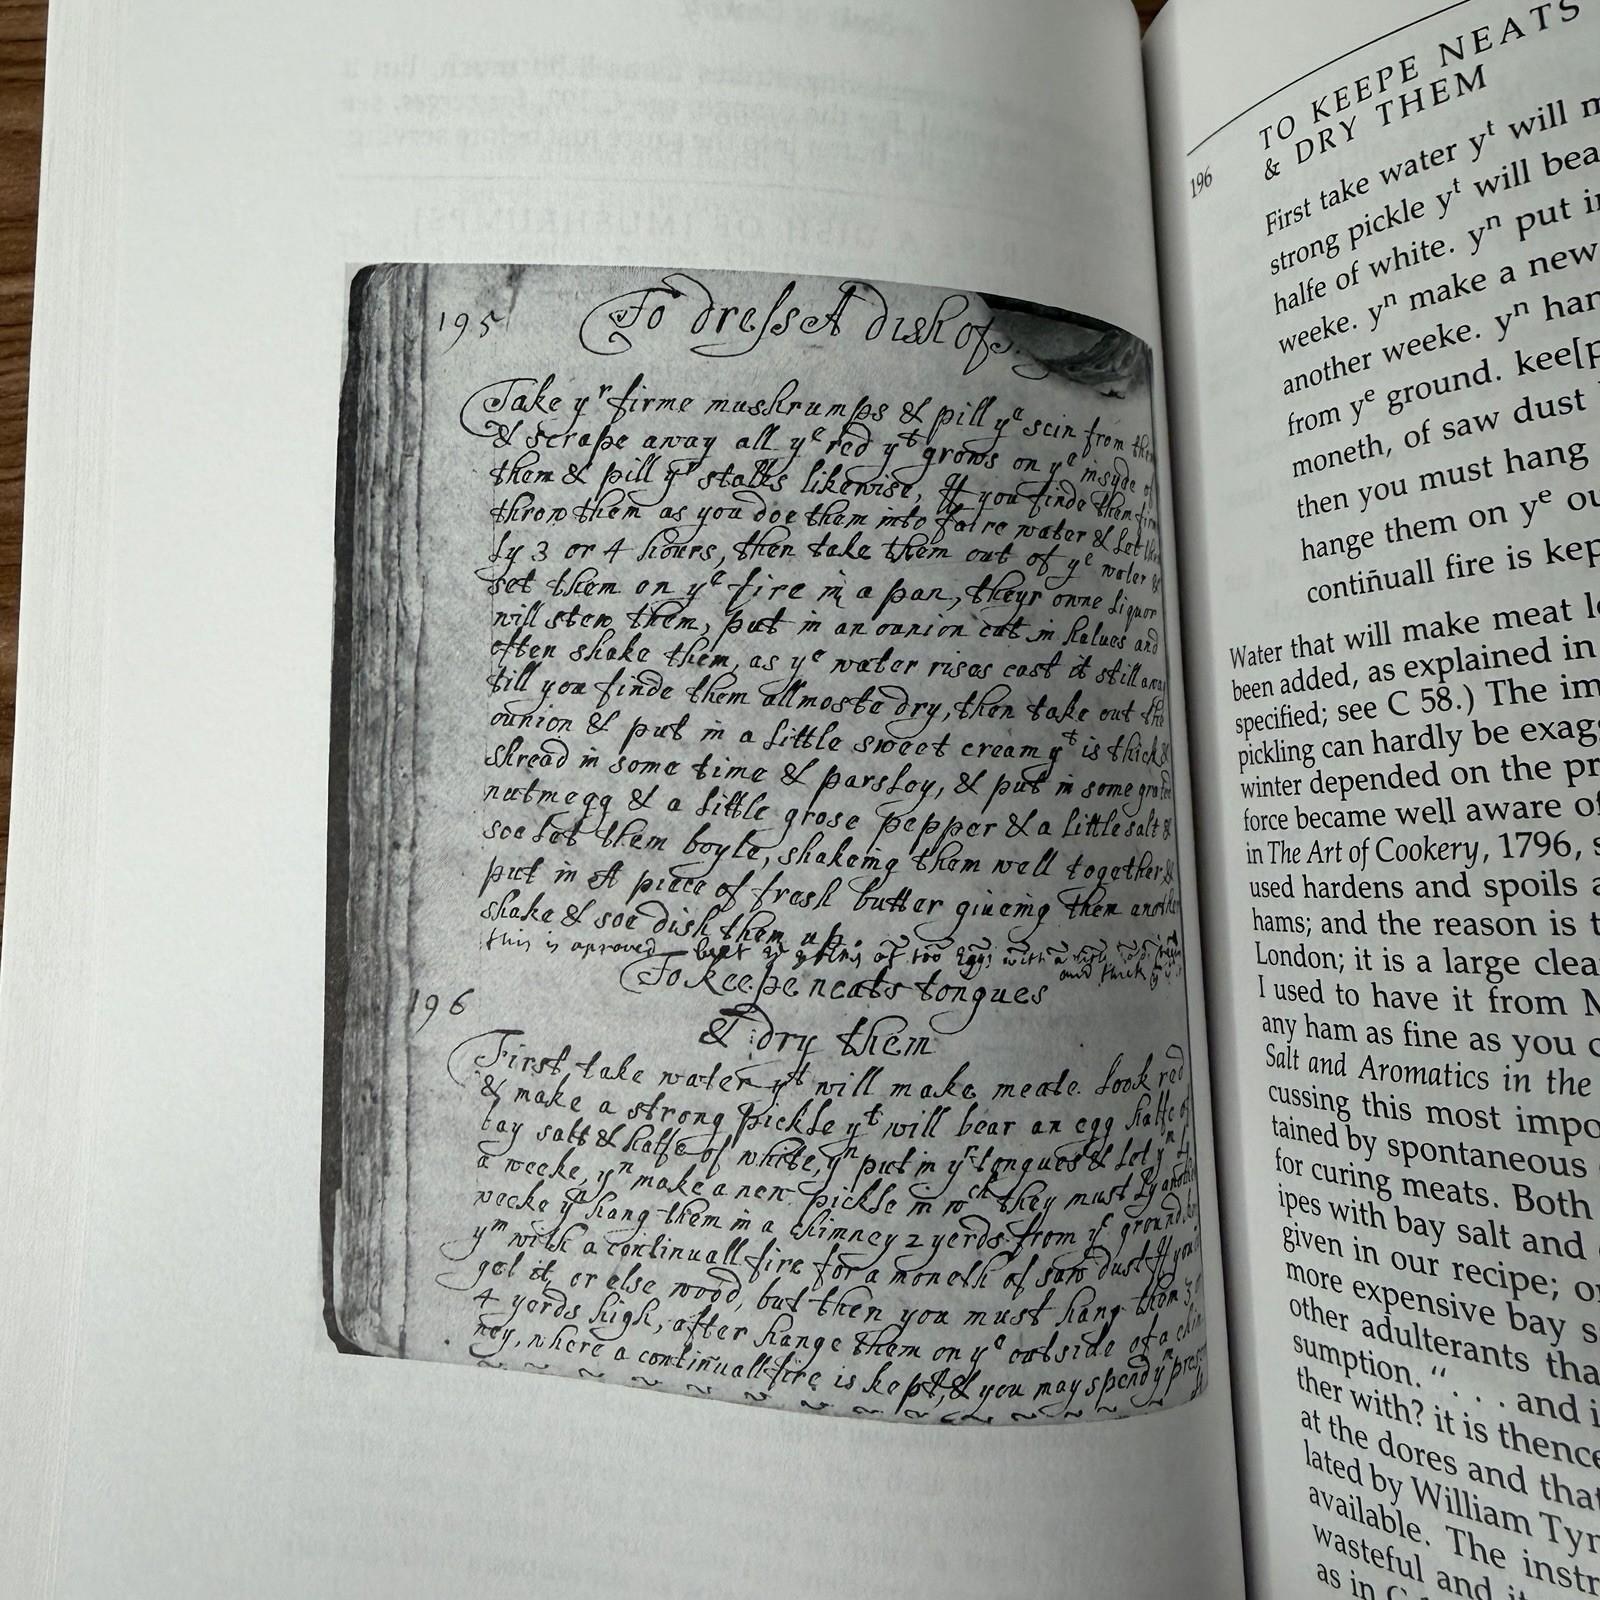 195
To dress A dish of
Take yr firme mushrumps & pill ye scin from them
& scrape away all ye red yt grows on ye insyde of
them & pill yr stalks likewise, If you finde them firm
throw them as you doe them into faire water & let them
ly 3 or 4 hours, then take them out of ye water &
set them on ye fire in a pan, theyr owne liquor
will stew them, put in an ounion cut in halves and
often shake them, as ye water rises cast it still away
till you finde them allmoste dry, then take out the
ounion & put in a little sweet cream yt is thick &
shread in some time & parsley, & put in some grated
nutmegg & a little grose pepper & a little salt &
soe let them boyle, shakeing them well together, &
put in A piece of fresh butter giueing them another
shake & soe dish them up.
this is aproved
and thick
To keepe neats tongues
& dry them
196
First take water yt will make meate look red
& make a strong pickle yt will bear an egg halfe of
bay salt & halfe of white, yn put in yr tongues & let yn ly
a weeke, yn make a new pickle in wch they must ly another
weeke yn hang them in a chimney 2 yerds from ye ground
ym with a continuall fire for a moneth of saw dust If you
get it, or else wood, but then you must hang them 3 or
4 yerds high, after hange them on ye outside of a chim
ney, where a continuall fire is kept, & you may spend yn
TO KEEPE NEATS
& DRY THEM
196
First take water yt will m
strong pickle yt will bea
halfe of white. yn put in
weeke. yn make a new
another weeke. yn han
from ye ground. kee[p
moneth, of saw dust
then you must hang
hange them on ye ou
contiñuall fire is kep
Water that will make meat lo
been added, as explained in
specified; see C 58.) The im
pickling can hardly be exagg
winter depended on the pr
force became well aware of
in The Art of Cookery, 1796, s
used hardens and spoils a
hams; and the reason is t
London; it is a large clea
I used to have it from N
any ham as fine as you c
Salt and Aromatics in the
cussing this most impo
tained by spontaneous
for curing meats. Both
ipes with bay salt and
given in our recipe; o
more expensive bay s
other adulterants tha
sumption. “. . . and i
ther with? it is thence
at the dores and that
lated by William Tyr
available. The instr
wasteful and it
as in C